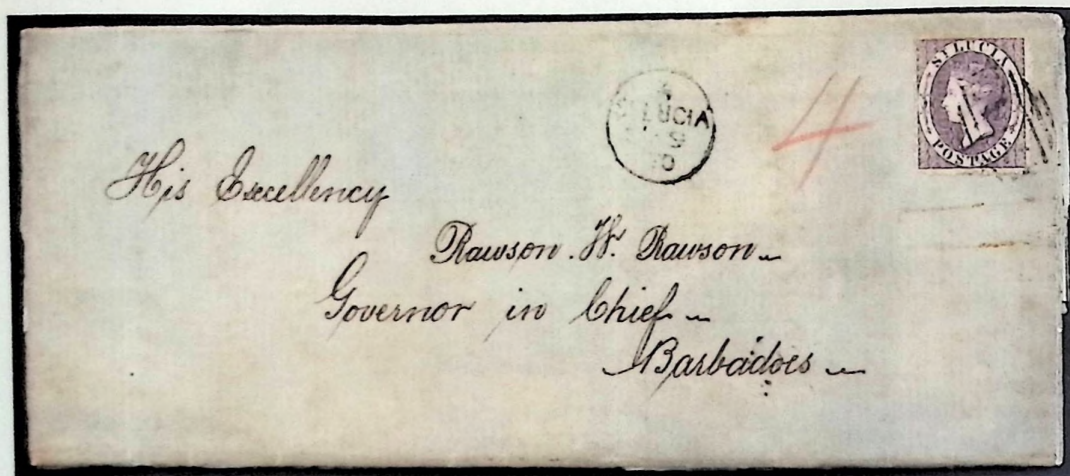 ST LUCIA
POSTAGE
LUCIA
9
4
His Excellency
Rawson. W. Rawson
Governor in Chief
Barbadoes